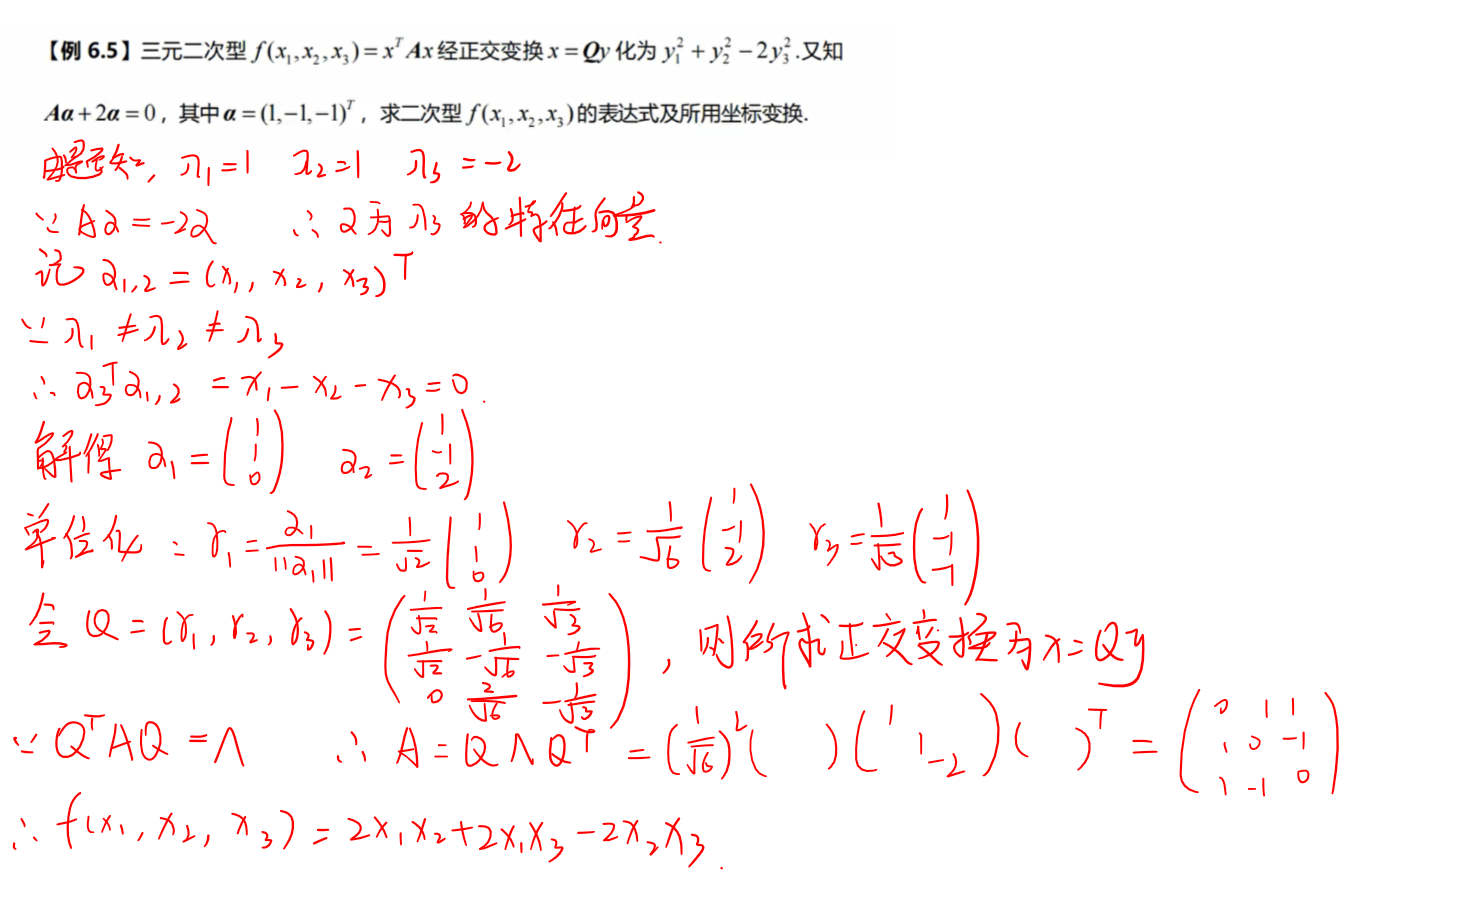 【例 6.5】三元二次型 f(x₁,x₂,x₃)=xᵀAx 经正交变换 x=Qy 化为 y₁²+y₂²−2y₃².又知
Aα+2α=0，其中 α=(1,−1,−1)ᵀ，求二次型 f(x₁,x₂,x₃)的表达式及所用坐标变换.
由题意知, λ₁=1 λ₂=1 λ₃=-2
∵ Aα=-2α ∴ α为 λ₃ 的特征向量.
记 α₁,₂=(x₁, x₂, x₃)ᵀ
∵ λ₁≠λ₂≠λ₃
∴ α₃ᵀα₁,₂ = x₁-x₂-x₃=0.
解得 α₁=(1 1 0) α₂=(1 -1 2)
单位化: γ₁=α₁/||α₁||=1/√2(1 1 0) γ₂=1/√6(1 -1 2) γ₃=1/√3(1 -1 -1)
令 Q=(γ₁, γ₂, γ₃)=(1/√2 1/√6 1/√3 1/√2 -1/√6 -1/√3 0 2/√6 -1/√3), 则所求正交变换为 x=Qy
∵ QᵀAQ=Λ ∴ A=QΛQᵀ=(1/√6)²( )(1 1 -2)( )ᵀ=(0 1 1 1 0 -1 1 -1 0)
∴ f(x₁, x₂, x₃)=2x₁x₂+2x₁x₃-2x₂x₃.